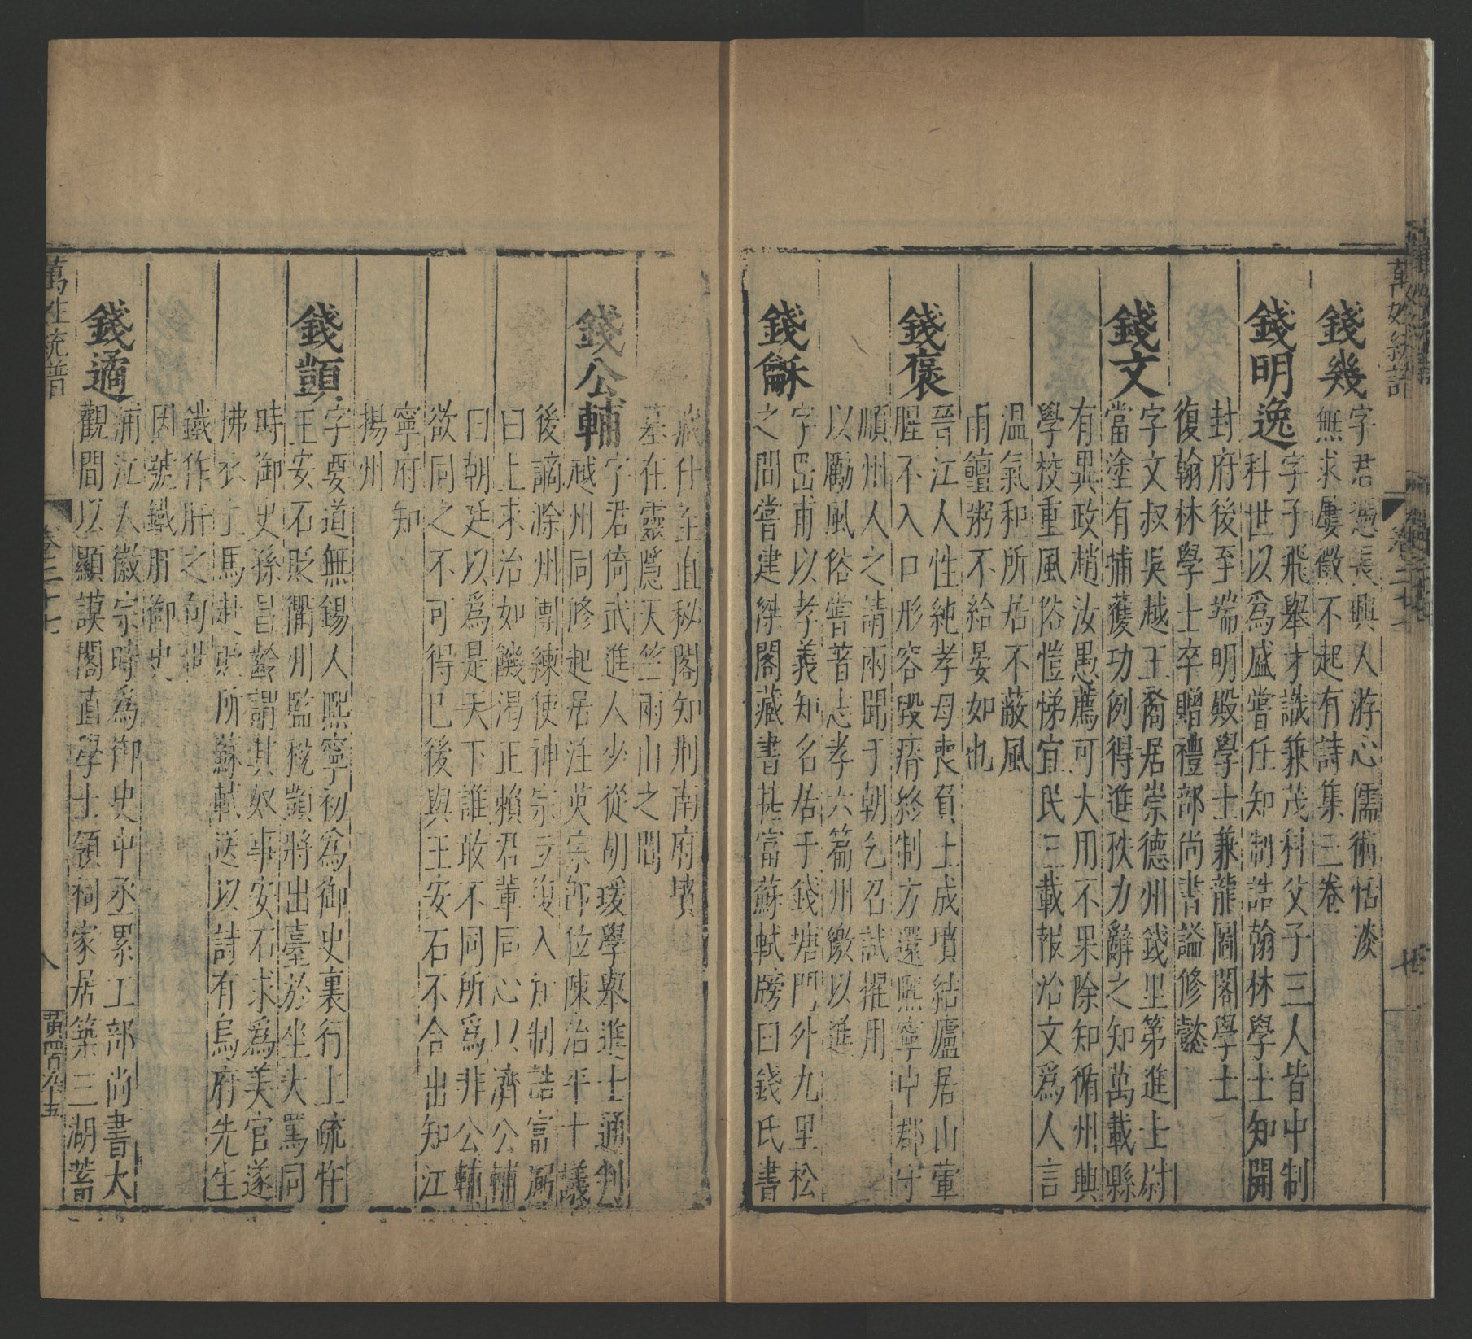 錢幾
字君
長興人游心儒術恬淡
無求屢徵不起有詩集三卷
錢明逸
字子飛舉才識兼茂科父子三人皆中制
科世以爲盛嘗任知制誥翰林學士知開
封府後至端明殿學士兼龍圖閣學士
復翰林學士卒贈禮部尚書謚修懿
錢文
字文叔吳越王裔居崇德州錢里第進士尉
當塗有捕獲功例得進秩力辭之知萬載縣
有異政趙汝愚薦可大用不果除知循州興
學校重風俗愷悌宜民三載報治文爲人言
溫氣和所居不蔽風
雨饘粥不給晏如也
錢褒
晉江人性純孝母喪負土成墳結廬居山葷
腥不入口形容毀瘠終制方還熙寧中郡守
順州人之請雨聞于朝乞召試擢用
以勵風俗嘗著志孝六篇州繳以進
錢龢
字岊甫以孝義知名居于錢塘門外九里松
之間嘗建傑閣藏書甚富蘇軾牓曰錢氏書
藏仕至直秘閣知荆南府墳
墓在靈隱天竺兩山之間
錢公輔
字君倚武進人少從胡瑗學舉進士通判
越州同修起居注英宗卽位陳治平十議
後謫滁州團練使神宗立復入知制誥富弼
曰上求治如饑渴正賴君輩同心以濟公輔
曰朝廷以爲是天下誰敢不同所爲非公輔
欲同之不可得已後與王安石不合出知江
寧府知
揚州
錢顗
字安道無錫人熙寧初爲御史裏行上疏忤
王安石貶衢州監稅顗將出臺於坐大罵同
時御史孫昌齡謂其奴事安石求爲美官遂
拂衣上馬
所蘇軾送以詩有烏府先生
鐵作肝之句
因號鐵肝御史
錢遹
浦江人徽宗時爲御史中丞累工部尚書大
觀間以顯謨閣直學士領祠家居築三湖蓄
萬姓統譜
卷二十七
八